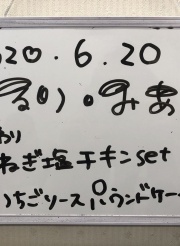 020.6.20
るい.みあ
わり
ねぎ塩チキンset
いちごソースパウンドケー